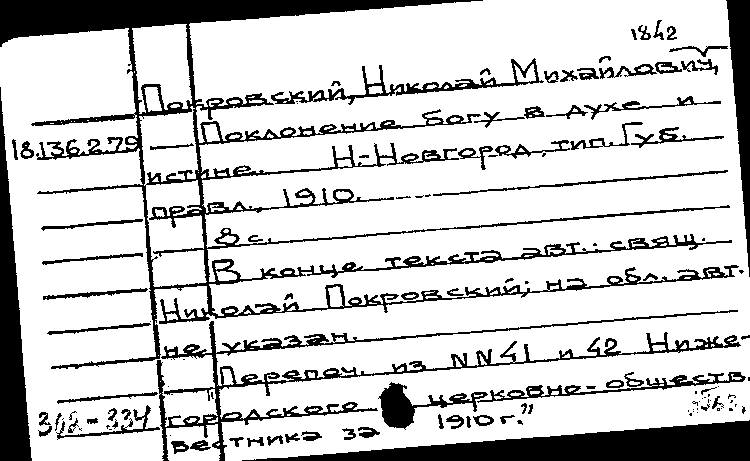 1842
Покровский, Николай Михайлович,
18.136.2.79 Поклонение богу в духе и
истине. Н.-Новгород, тип. Губ.
правл., 1910.
8 с.
В конце текста авт.: свящ.
Николай Покровский; на обл. авт.
не указан.
Перепеч. из NN 41 и 42 Ниже-
городского церковно-обществ.
вестника за 1910 г."